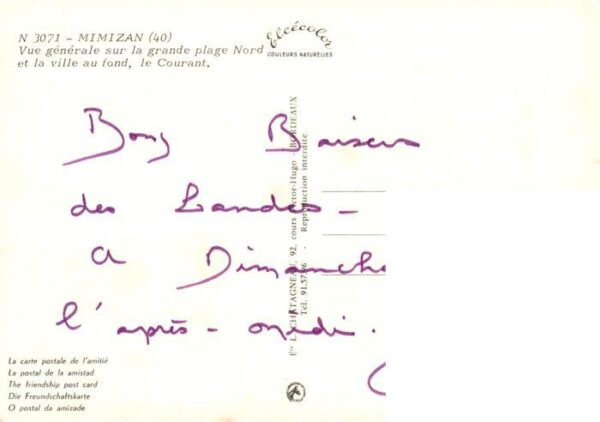 N 3071 - MIMIZAN (40)
Vue générale sur la grande plage Nord
et la ville au fond, le Courant.
Elcécolor
COULEURS NATURELLES
Bons Baisers
des Landes -
A Dimanche
l'après-midi.
Ets L. CHATAGNEAU, 92, cours Victor-Hugo - BORDEAUX
Reproduction interdite
La carte postale de l'amitié
La postal de la amistad
The friendship post card
Die Freundschaftskarte
O postal da amizade